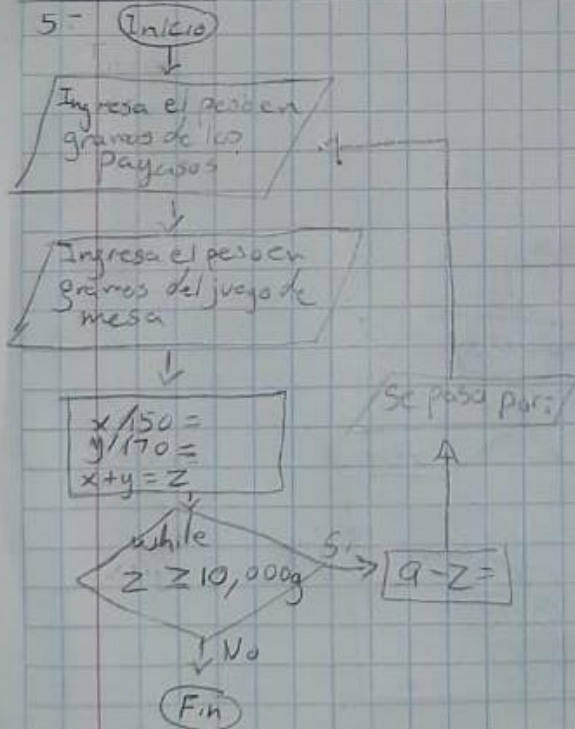 5-
Inicio
Ingresa el peso en
gramos de los
Payasos
Ingresa el peso en
gramos del juego de
mesa
x/150=
y/170=
x+y=z
while
z ≥10,000g
Si
a-z=
Se pasa por:
No
Fin